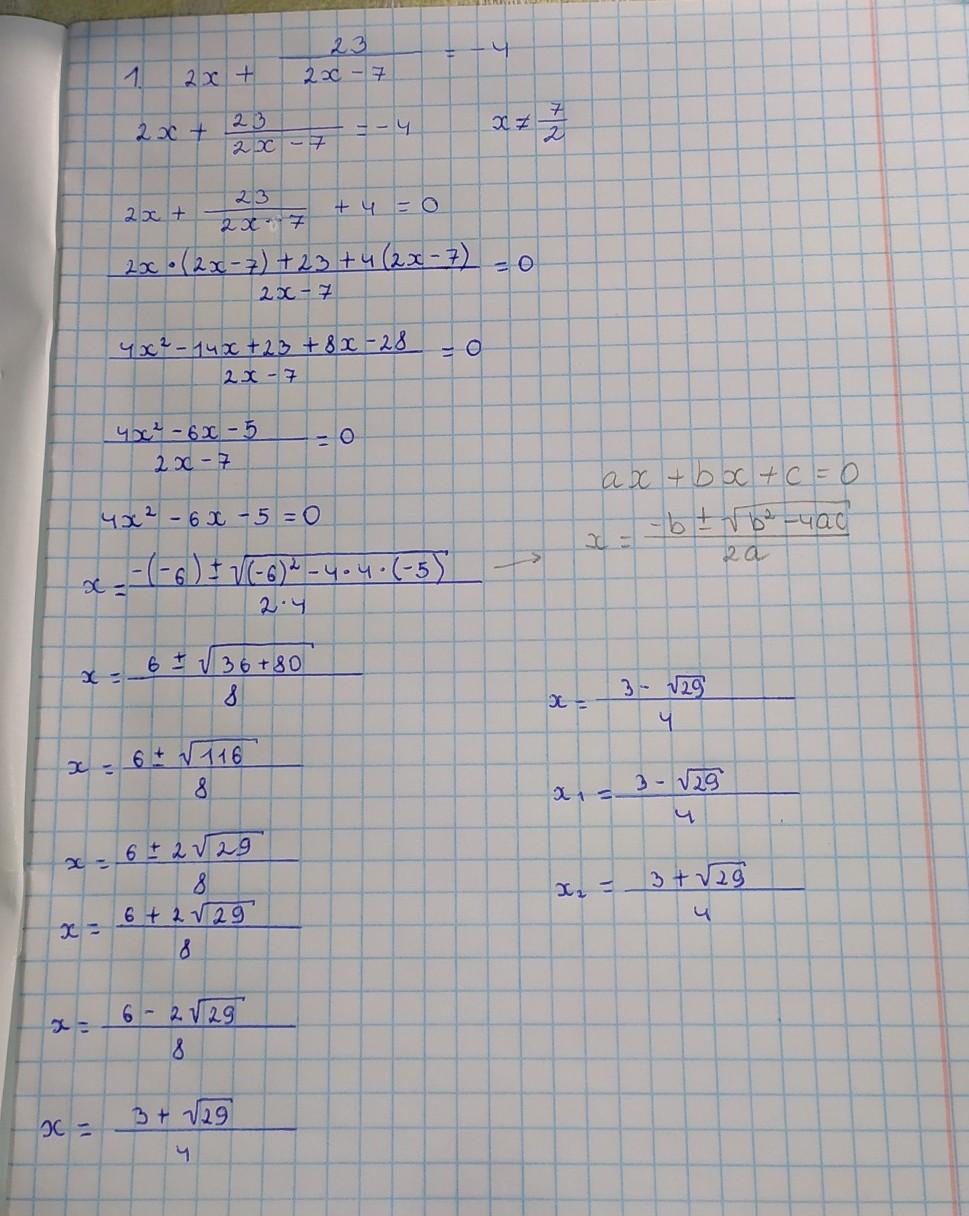 1. 2x + 23/(2x - 7) = -4
2x + 23/(2x - 7) = -4    x ≠ 7/2
2x + 23/(2x - 7) + 4 = 0
(2x • (2x - 7) + 23 + 4(2x - 7))/(2x - 7) = 0
(4x² - 14x + 23 + 8x - 28)/(2x - 7) = 0
(4x² - 6x - 5)/(2x - 7) = 0
4x² - 6x - 5 = 0
x = (-(-6) ± √((-6)² - 4 • 4 • (-5)))/(2 • 4) →
ax + bx + c = 0
x = (-b ± √(b² - 4ac))/(2a)
x = (6 ± √(36 + 80))/8
x = (6 ± √116)/8
x = (6 ± 2√29)/8
x = (6 + 2√29)/8
x = (6 - 2√29)/8
x = (3 + √29)/4
x = (3 - √29)/4
x₁ = (3 - √29)/4
x₂ = (3 + √29)/4